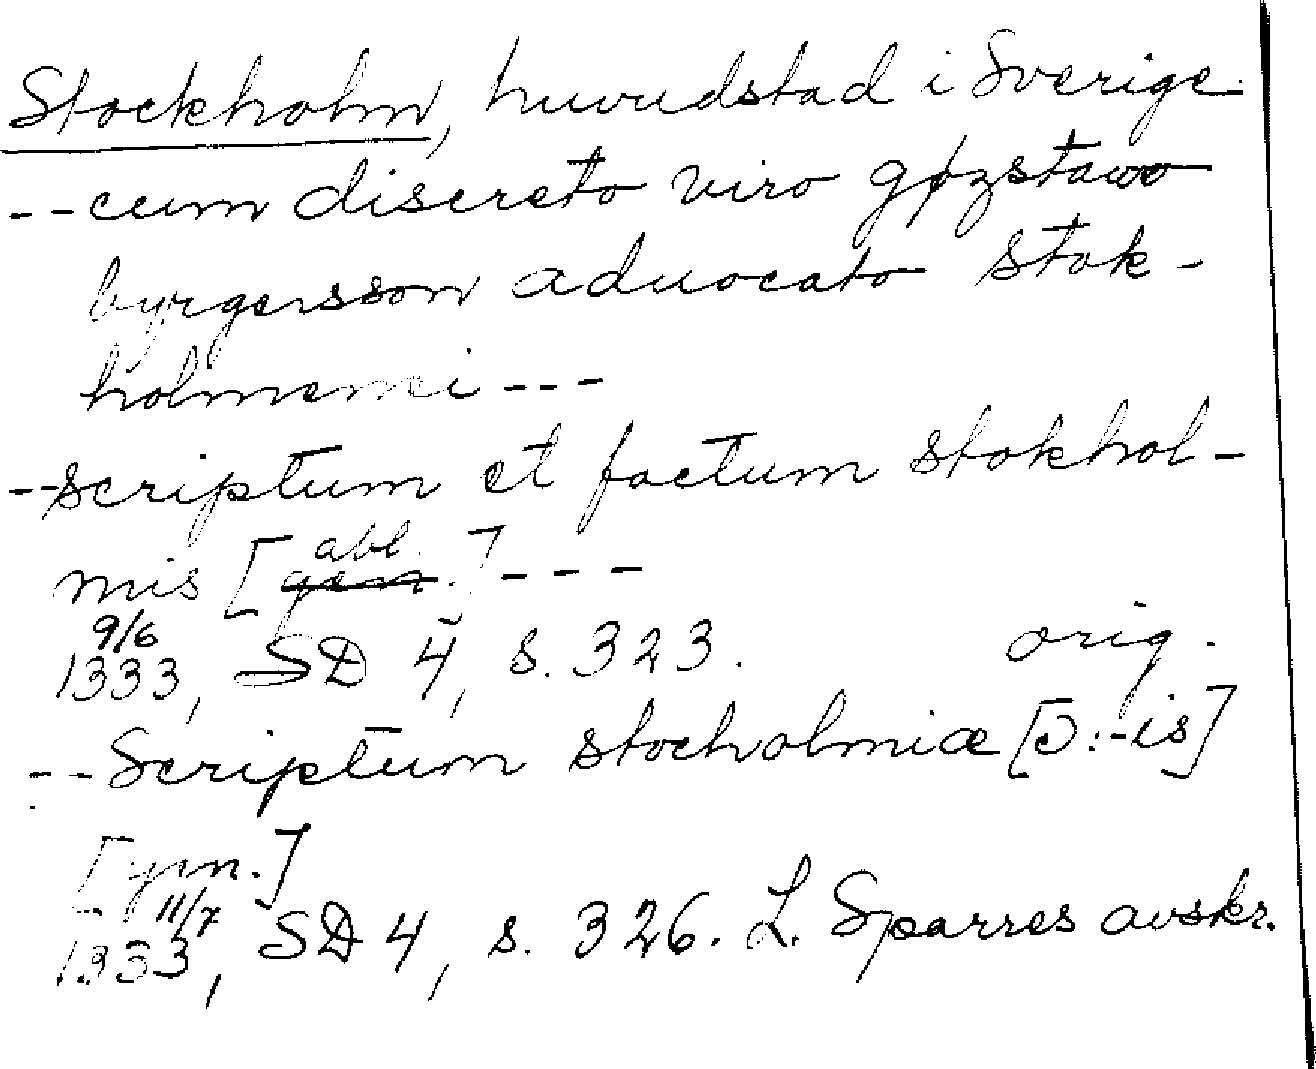 Stockholm, huvudstad i Sverige.
-- cum discreto viro gøzstawo
byrgersson aduocato stok-
holmensi ---
-- scriptum et factum stokhol-
mis [abl. gen.] ---
9/6
1333, SD 4, s. 323. orig.
-- Scriptum stocholmiæ [ɔ: -is]
[gen.]
11/7
1333, SD 4, s. 326. L. Sparres avskr.